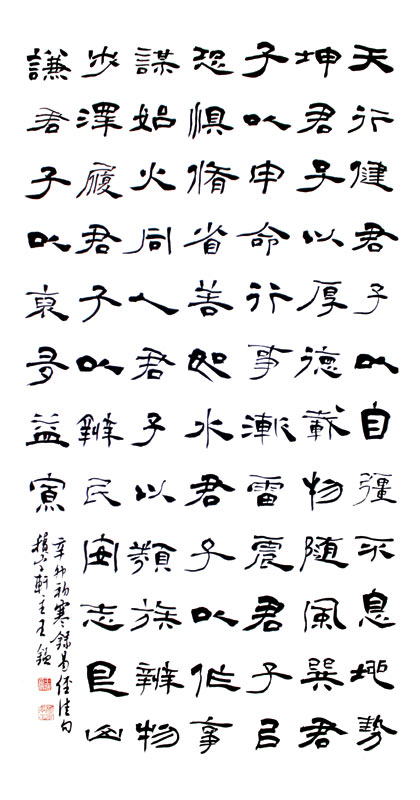 天行健君子以自彊不息地勢
坤君子以厚德載物随風巽君
子以申命行事漸雷震君子㠯
恐惧脩省善如水君子以作事
謀始火同人君子以類族辨物
步澤履君子以辨民志山
謙君子以裒多益寡
辛卯初寒錄易經佳句
軒主王